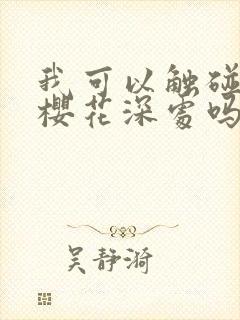 我可以触碰
樱花深处吗
吴静漪